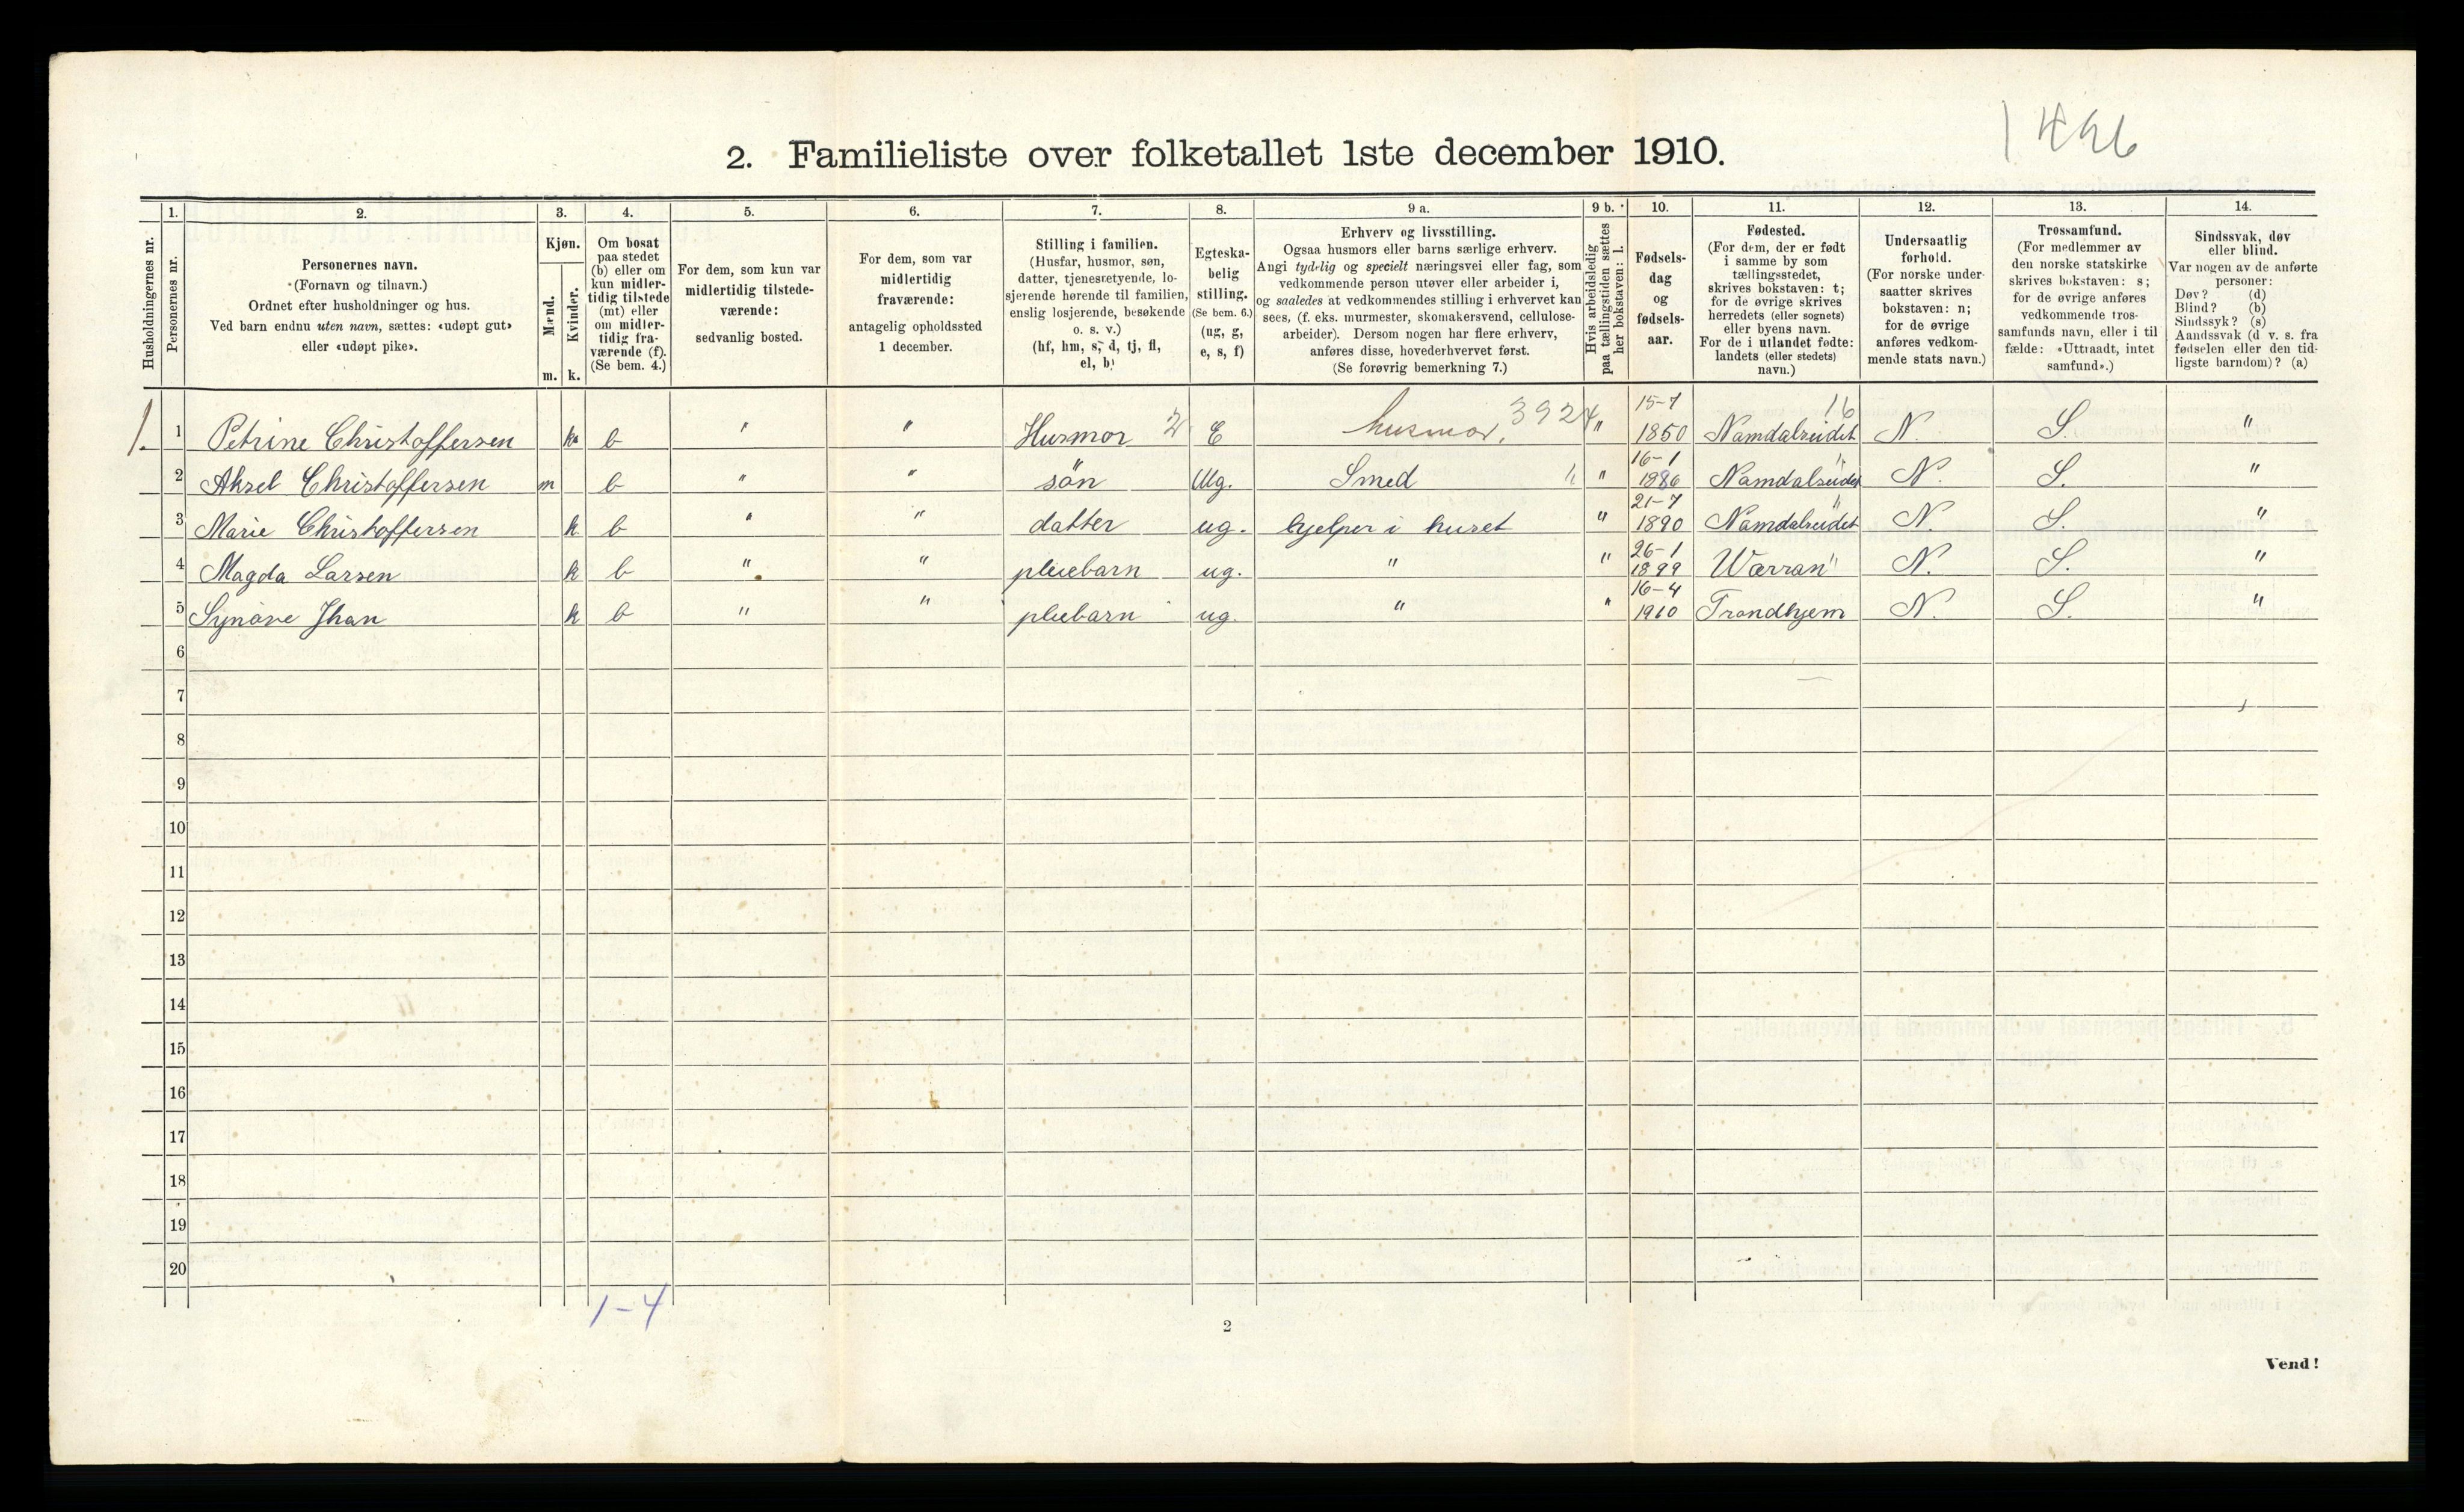 1496
2. Familieliste over folketallet 1ste december 1910.
1. 2. 3. 4. 5. 6. 7. 8. 9 a. 9 b. 10. 11. 12. 13. 14.
Husholdningernes nr.
Personernes nr.
Personernes navn.
(Fornavn og tilnavn.)
Ordnet efter husholdninger og hus.
Ved barn endnu uten navn, sættes: «udøpt gut»
eller «udøpt pike».
Kjøn.
Mænd.
Kvinder.
m. k.
Om bosat
paa stedet
(b) eller om
kun midler-
tidig tilstede
(mt) eller
om midler-
tidig fra-
værende (f).
(Se bem. 4.)
For dem, som kun var
midlertidig tilstede-
værende:
sedvanlig bosted.
For dem, som var
midlertidig
fraværende:
antagelig opholdssted
1 december.
Stilling i familien.
(Husfar, husmor, søn,
datter, tjenestetyende, lo-
sjerende hørende til familien,
enslig losjerende, besøkende
o. s. v.)
(hf, hm, s, d, tj, fl,
el, b)
Egteska-
belig
stilling.
(Se bem. 6.)
(ug, g,
e, s, f)
Erhverv og livsstilling.
Ogsaa husmors eller barns særlige erhverv.
Angi tydelig og specielt næringsvei eller fag, som
vedkommende person utøver eller arbeider i,
og saaledes at vedkommendes stilling i erhvervet kan
sees, (f. eks. murmester, skomakersvend, cellulose-
arbeider). Dersom nogen har flere erhverv,
anføres disse, hovederhvervet først.
(Se forøvrig bemerkning 7.)
Hvis arbeidsledig
paa tællingstiden sættes
her bokstaven: l.
Fødsels-
dag
og
fødsels-
aar.
Fødested.
(For dem, der er født
i samme by som
tællingsstedet,
skrives bokstaven: t;
for de øvrige skrives
herredets (eller sognets)
eller byens navn.
For de i utlandet fødte:
landets (eller stedets)
navn.)
Undersaatlig
forhold.
(For norske under-
saatter skrives
bokstaven: n;
for de øvrige
anføres vedkom-
mende stats navn.)
Trossamfund.
(For medlemmer av
den norske statskirke
skrives bokstaven: s;
for de øvrige anføres
vedkommende tros-
samfunds navn, eller i til-
fælde: «Uttraadt, intet
samfund».)
Sindssvak, døv
eller blind.
Var nogen av de anførte
personer:
Døv? (d)
Blind? (b)
Sindssyk? (s)
Aandssvak (d. v. s. fra
fødselen eller den tid-
ligste barndom)? (a)
1. 1 Petrine Christoffersen k b " " Husmor 2 E husmor. 3924 " 15-7 1850 Namdalseidet 16 N. S. "
2 Aksel Christoffersen m b " " sön Ug. Smed " " 16-1 1986 Namdalseidet " N. S. "
3 Marie Christoffersen k b " " datter ug. hjelper i huset " 21-7 1890 Namdalseidet " N. S. "
4 Magda Larsen k b " " pleiebarn ug. " " 26-1 1899 Værran " N. S. "
5 Synöve Jhan k b " " pleiebarn ug. " " 16-4 1910 Trondhjem N. S. "
6
7
8
9
10
11
12
13
14
15
16
17
18
19
20
1-4
2
Vend!